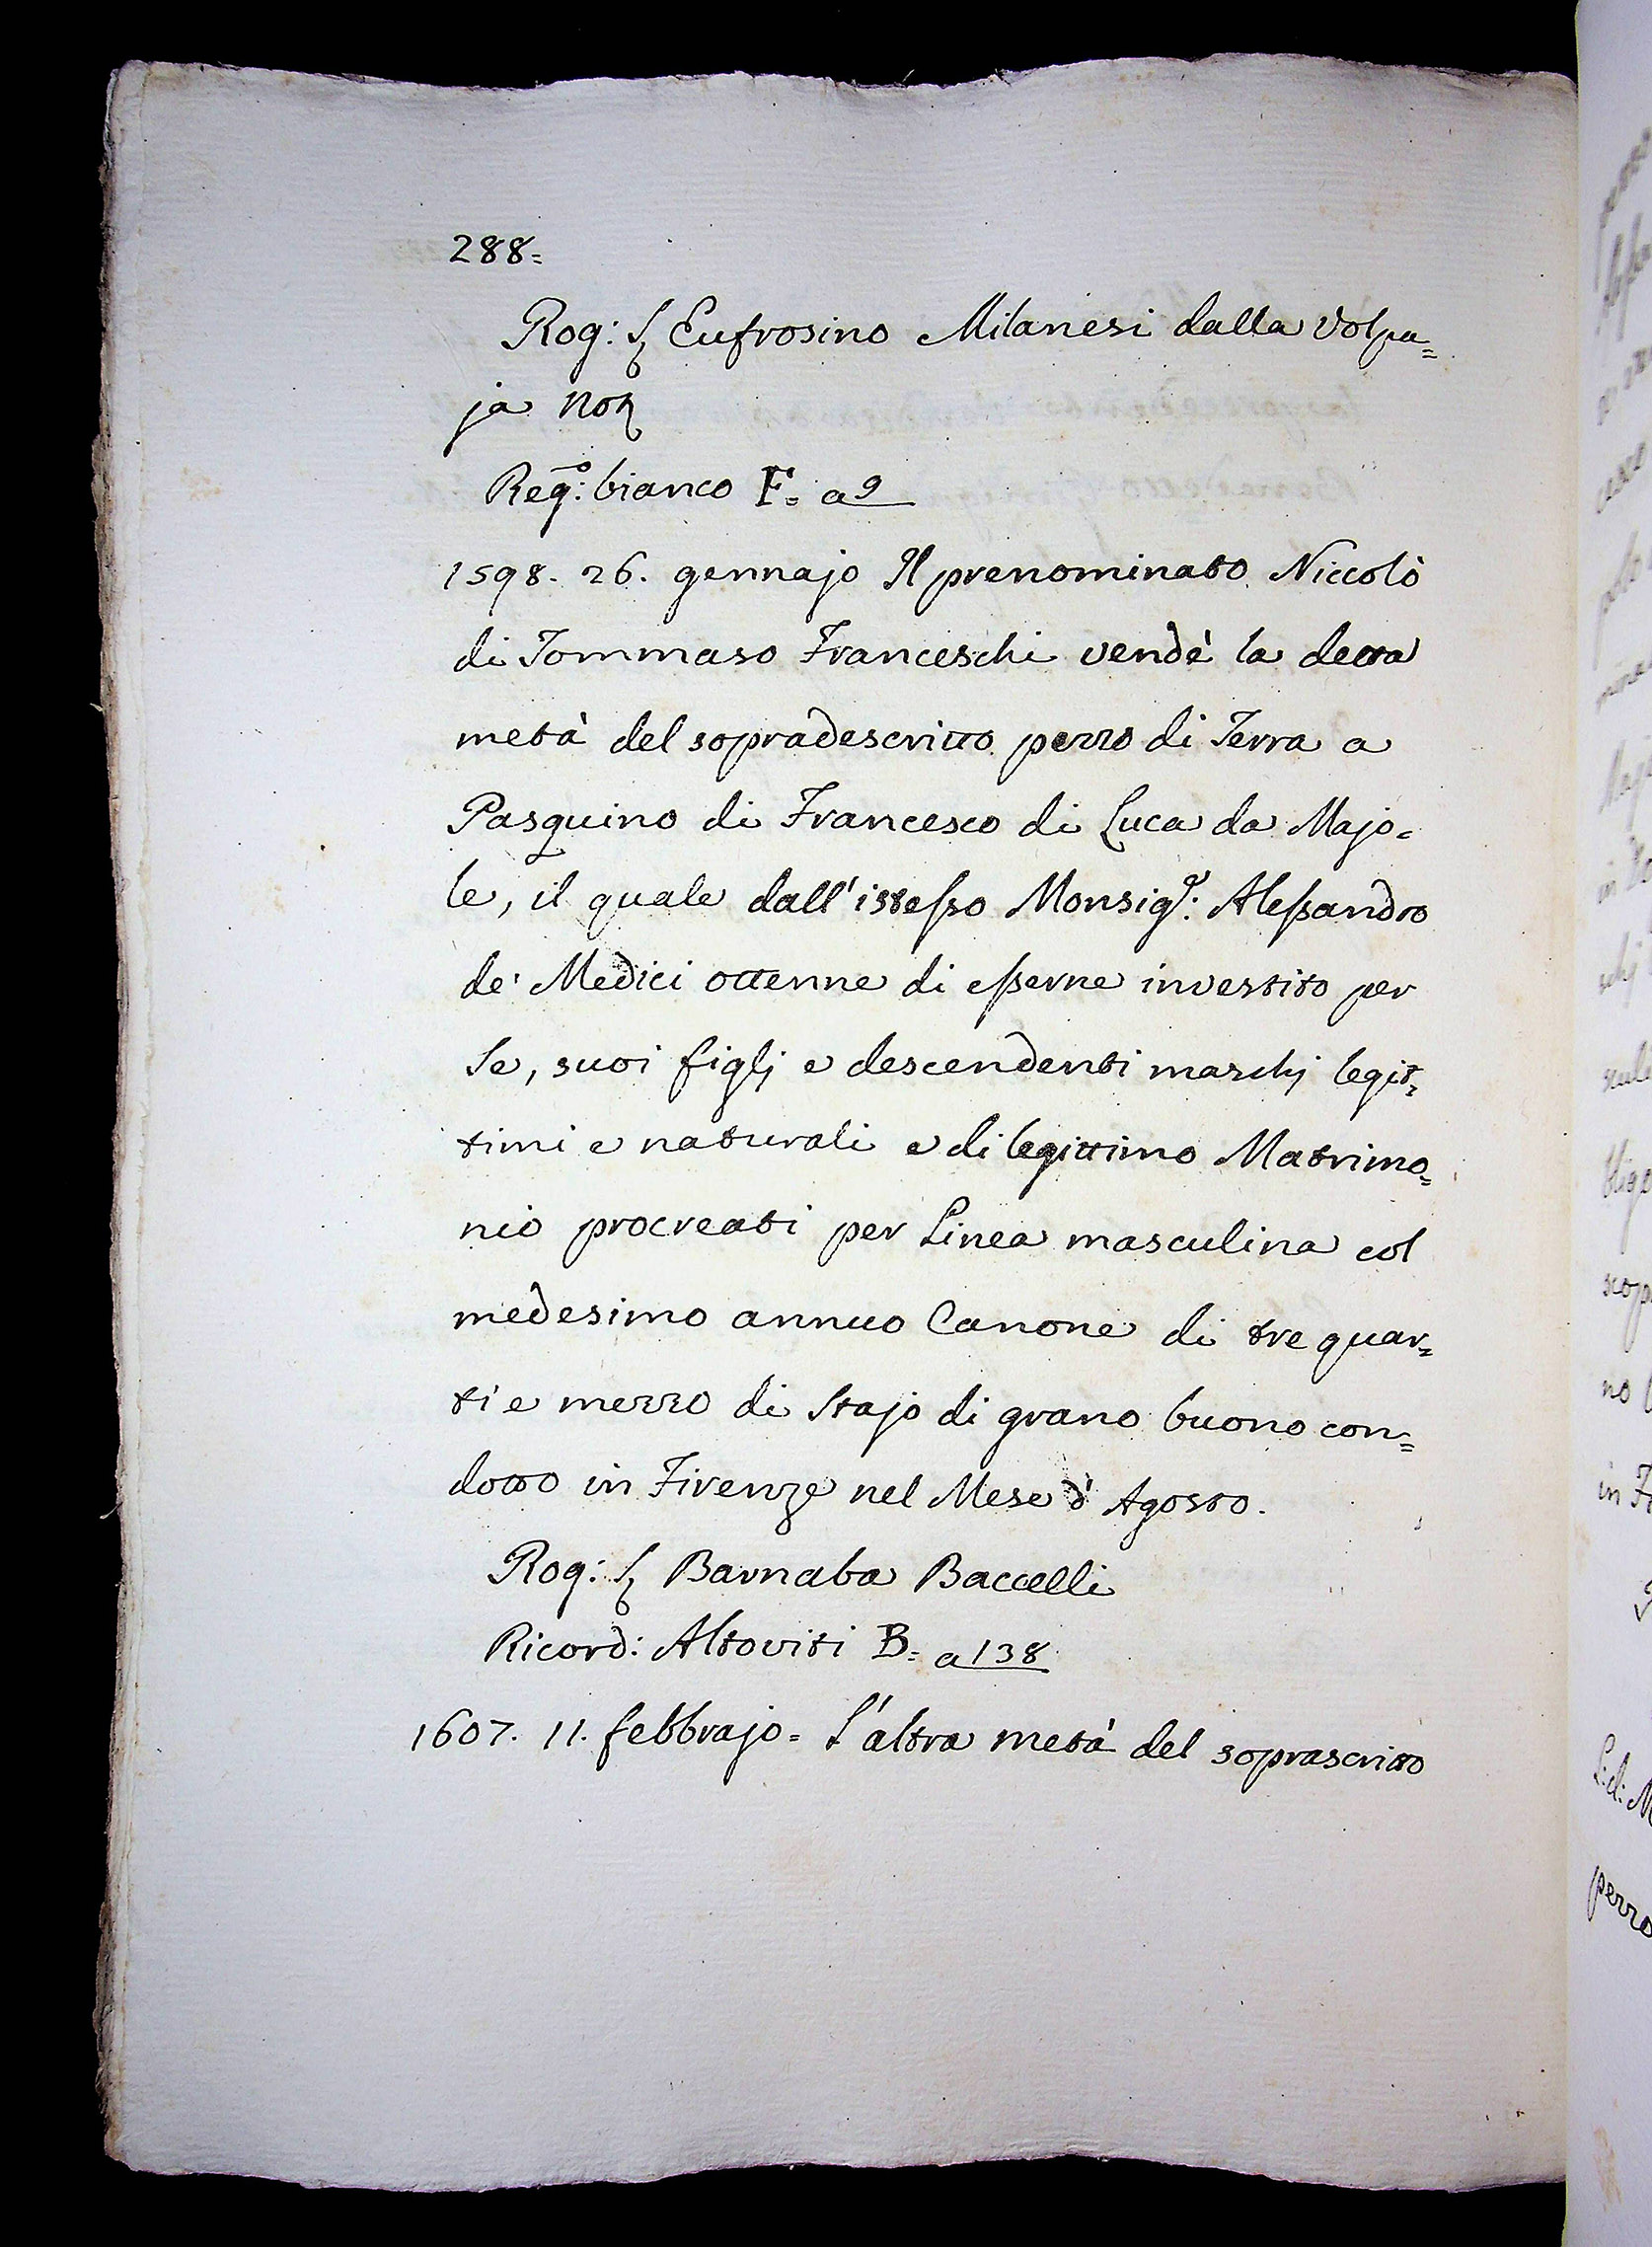 288=
Rog: S. Eufrosino Milanesi dalla Volpa=
ja Not.
Reg.o: bianco F= a 9
1598. 26. gennajo Il prenominato Niccolò
di Tommaso Franceschi vendè la detta
metà del sopradescritto pezzo di Terra a
Pasquino di Francesco di Luca da Majo=
le, il quale dall'istesso Monsig.r: Alessandro
de' Medici ottenne di esserne investito per
Se, suoi figlj e descendenti maschj legit=
timi e naturali e di legittimo Matrimo=
nio procreati per Linea masculina col
medesimo annuo Canone di tre quar=
ti e mezzo di Stajo di grano buono con=
dotto in Firenze nel Mese d'Agosto.
Rog: S. Barnaba Baccelli
Ricord: Altoviti B= a 138
1607. 11. febbrajo= L'altra metà del soprascritto